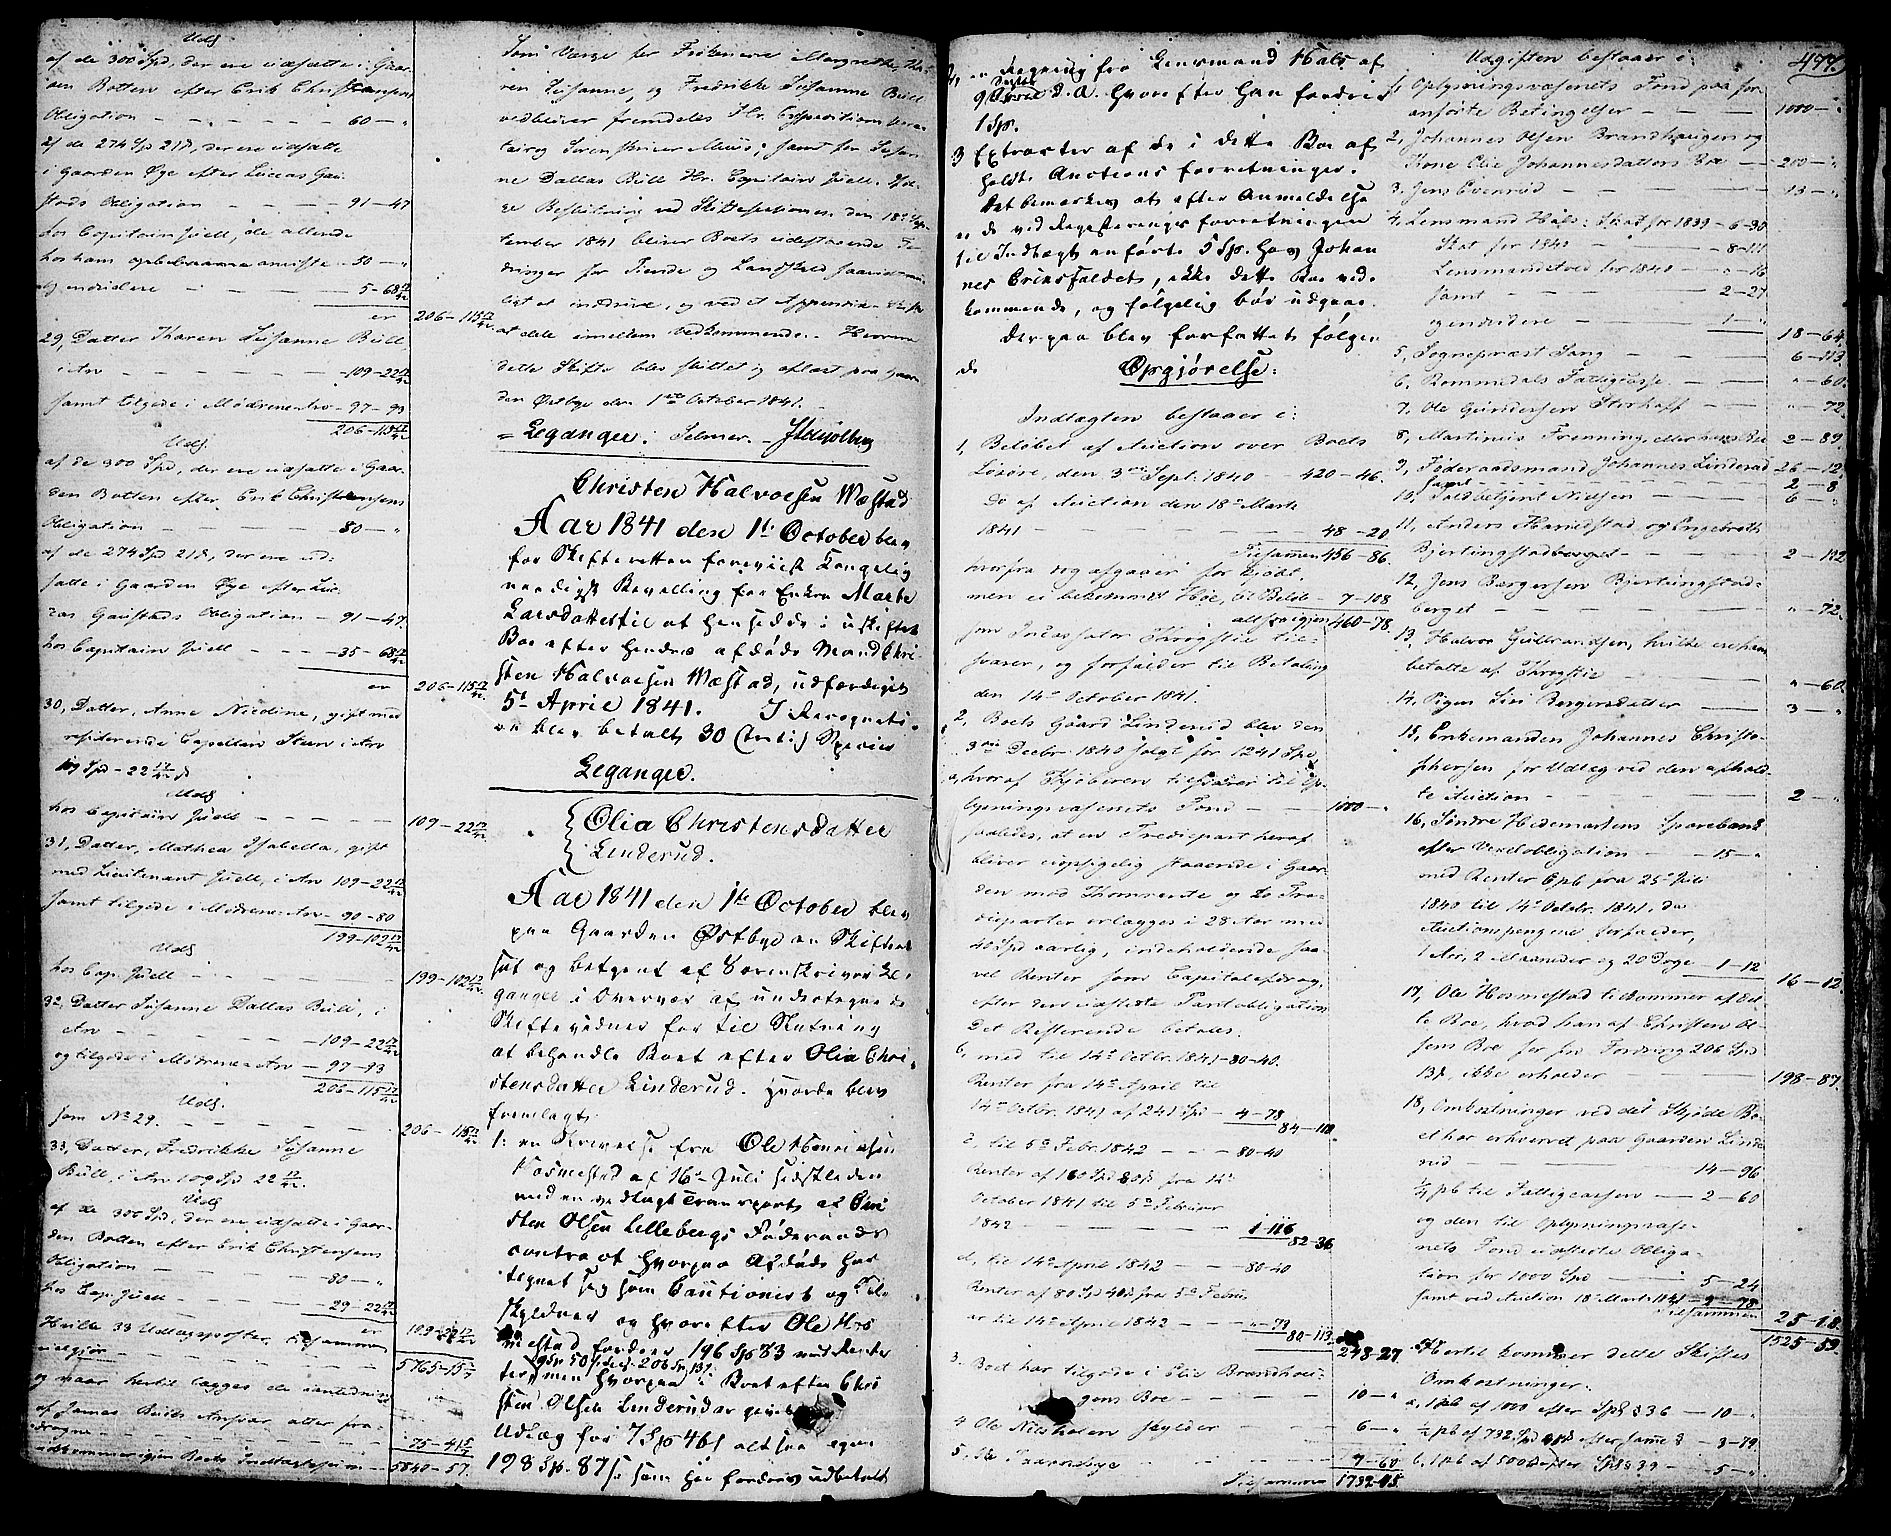 Udl
af de 300 Spd, der ere udsatte i Gaar-
den Botten efter Erik Christensens
Obligation — 60 — "
af de 274 Spd 21 s, der ere udsatte
i Gaarden Øye efter Lucas Gau-
stads Obligation — 91 — 47
hos Capitain Juell, de allerede
hos ham — 50 — "
og endvidere — 5 — 68 17/42
er 206 — 115 17/42
29, Datter Karen Susanne Bull,
i Arv — 109 — 22 17/42
samt tilgode i Mødrene Arv — 97 — 93
206 — 115 17/42
Udl.
af de 300 Spd, der ere udsatte i Gaar-
den Botten efter Erik Christensens
Obligation — 80 — "
af de 274 Spd 21 s, der ere ud-
satte i Gaarden Øye efter Lu-
cas Gaustads Obligation — 91 — 47
hos Capitain Juell — 35 — 68 17/42
er 206 — 115 17/42
30, Datter, Anne Nicoline, gift med
residerende Capellan Steen i Arv
109 Spd — 22 17/42 s
Udl
hos Capitain Juell — 109 — 22 17/42
31, Datter, Mathea Isabella, gift
med Lieutenant Juell, i Arv 109 — 22 17/42
samt tilgode i Mødrene Arv — 90 — 80
199 — 102 17/42
Udl
hos Cap. Juell — 199 — 102 17/42
32, Datter Susanne Dallas Bull, i
Arv — 109 — 22 17/42
og tilgode i Mødrene Arv — 97 — 93
206 — 115 17/42
Udl.
som No 29. — 206 — 115 17/42
33, Datter, Fredrikke Susanne
Bull, i Arv 109 Spd 22 17/42.
Udl
af de 300 Spd, der ere udsatte i Gaar-
den Botten efter Erik Christensens
Obligation — 80 — "
hos Cap. Juell — 29 — 22 17/42
er 109 — 22 17/42
Hvilke 33 Udlægsposter, tilsammen
udgjør — 5765 — 15
og naar hertil lægges de
af James Bulls Arv
dragne — 75 — 41
udkommer igjen Boets Indtægtssum — 5840 — 57.
Som Værge for Frøknerne Margrethe, Ka-
ren Susanne, og Fredrikke Susanne Bull
vedbliver fremdeles Hr. Expeditionssecre-
tair og Sorenskriver Muus; samt for Susan-
ne Dallas Bull Hr. Capitain Juell. Iføl-
ge Beslutning ved Skiftesessionen den 18de Sep-
tember 1841 bliver Boets udestaaende For-
dringer for Tiende og Landskyld saavidt mu-
ligt at inddrive, og ved et Appendix-Skifte
at dele imellem Vedkommende. Hvorved
dette Skifte blev sluttet og aflæst paa Gaar-
den Østbye den 1ste October 1841.
Leganger. Selmer.
Christen Halvorsen Wæstad
Aar 1841 den 1te October blev
for Skifteretten foreviist Kongelig
naadigst Bevilling for Enken Marte
Larsdatter til at hensidde i uskiftet
Boe efter hendes afdøde Mand Chri-
sten Halvorsen Wæstad, udfærdiget
5t April 1841. I Recogniti-
on blev betalt 30 (treti) Species
Leganger.
Olia Christensdatter
Linderud.
Aar 1841 den 1te October blev
paa Gaarden Østbye en Skifteret
sat og betjent af Sorenskriver Le-
ganger i Overvær af undertegnede
Skiftevidner for til Slutning
at behandle Boet efter Olia Chri-
stensdatter Linderud. Hvorda blev
fremlagt.
1: en Skrivelse fra Ole Henriksen
Hosmestad af 16de Juli sidstleden
med en vedlagt Transport af Chri-
sten Olsen Lillebergs Føderaads
contract hvorpaa Afdøde har
tegnet sig som Cautionist og Sel-
skyldner og hvorefter Ole Hos-
mestad fordrer 196 Sp 83 med Renter
9 Sp 50 s tils. 206 Sp. 13 s.
men hvorpaa i Boet efter Chri
sten Olsen Linderud er givet
Udlæg for 7 Sp 46 s altsaa igjen
198 Sp. 87 s som her fordres udbetalt
2, en Regning fra Lensmand Hals af
9 D. A. hvorefter han fordrer
1 Sp.
3 Extracter af de i dette Boe af
holdte Auctions forretninger.
Det bemærkes at efter Anmeldelse
er de ved Registrerings forretningen
til Indtægt anførte 5 Sp. hos Johan
nes Eriksfaldet, ikke dette Boe ved
kommende, og følgelig bør udgaae.
Derpaa blev forfattet følgen
de
Opgjørelse:
Indtægten bestaaer i:
1, Beløbet af Auction over Boets
Løsøre, den 3die Sept. 1840 — 420 — 46.
Do af Auction den 18de Marts
1841 — 48 — 20
Tilsammen 456 — 86.
hvorfra nog afgaaer for kjøbt
men ei bekommet Høe, til Beløb — 7 — 108
altsaa igjen 460 — 78
som Incassator Throgstie til-
svarer, og forfalder til Betaling
den 14de October 1841.
2, Boets Gaard Linderud blev den
3die Decbr. 1840 solgt for 1241 Spd,
a, hvoraf Kjøberen tilsvarer til Op-
lysningsvæsenets Fond — 1000 — "
saaledes, at en Trediepart heraf
bliver uopsigelig staaende i Gaar-
den mod Thomsrente og to Tre-
dieparter erlægges i 28 Aar med
40 Spd aarlig, indeholdende saa
vel Renter som Capitalafdrag,
efter den udstedte Pantobligation
Det Resterende betales.
b, med til 14de Octbr. 1841 — 80 — 40.
Renter fra 14de April til
14de Octbr. 1841 af 241 Spd — 4 — 78
84 — 118
c, til 5te Febr. 1842 — 80 — 40
Renter af 160 Spd 80 s fra 14de
October 1841 til 5te Februar
1842 — 1 — 116
82 — 36
d, til 14de April 1842 — 80 — 40
Renter af 80 Spd 40 s fra 5te Febru
ar til 14de April 1842 — " — 73
80 — 113
248 — 27
3. Boet har tilgode i Elie Brandhau-
gens Boe — 10 — "
4 Ole Nilsholen skylder — 6 — "
5. Ole — 7 — 60
Tilsammen 1732 — 45
444.
Udgiften bestaaer i:
1, Oplysningsvæsenets Fond paa for
anførte Betingelser — 1000 — "
2, Johannes Olsen Brandhaugen og
Kone Elie Johannesdatters Boe — 200 — "
3. Jens Evenrud — 13 — "
4, Lensmand Hals: Skat for 1839 — 6 — 30
Skat for 1840 — 8 — 111
Lensmandstold for 1840 — " — 16
samt — 2 — 27
og endvidere — 1 — "
18 — 64
5, Sognepræst Lang — 6 — 113
6. Rommedals Fattigcasse — " — 60
7, Ole Gundersen Storhoff — " — 72
8, Martinus Frenning, eller hans Boe 2 — 89
9, Føderaadsmand Johannes Linderud 26 — 12
samt — 2 — 8
10, Toldbetjent Nielsen — 6 — "
11, Anders Harildstad og Engebreth
Bjertingstadberget — 2 — 112
12, Jens Børgersen Bjertingstad-
berget — " — 72
13, Halvor Gulbrandsen, hvilke ere ham
betalte af Throgstie — " — 60
14, Pigen Siri Børgersdatter — 3 — "
15, Enkemanden Johannes Christo-
phersen for Udlæg ved den afhold-
te Auction — 2 — "
16, Søndre Hedemarkens Sparebank
efter Vexelobligation — 15 — "
med Renter 6 pC fra 25de Juli
1840 til 14de Octbr. 1841, da
Auctionspengene forfalder,
1 Aar, 2 Maaneder og 20 Dage 1 — 12
16 — 12
17, Ole Hosmestad tilkommer af det-
te Boe, hvad han af Christen Ol-
sens Boe for sin Fordring 206 Spd
13 s, ikke erholder — 198 — 87
18, Omkostninger ved det Skjøde Bo-
et har erhvervet paa Gaarden Linde
rud — 14 — 96
1/4 pC til Fattigcassen — 2 — 60
og den til Oplysningsvæse-
nets Fond udstedte Obliga-
tion for 1000 Spd — 5 — 24
samt ved Auction 18de Marts 1841 — 2 — 78
25 — 18
Tilsammen 1525 — 59
Hertil kommer dette Skiftes
Omkostninger:
a, 1 pC af 1000 efter Spl § 36 — 10 — "
1/2 pC af 732 Spd efter samme § — 3 — 79
b, 1 pC af 500 efter Spl § 39 — 5 — "